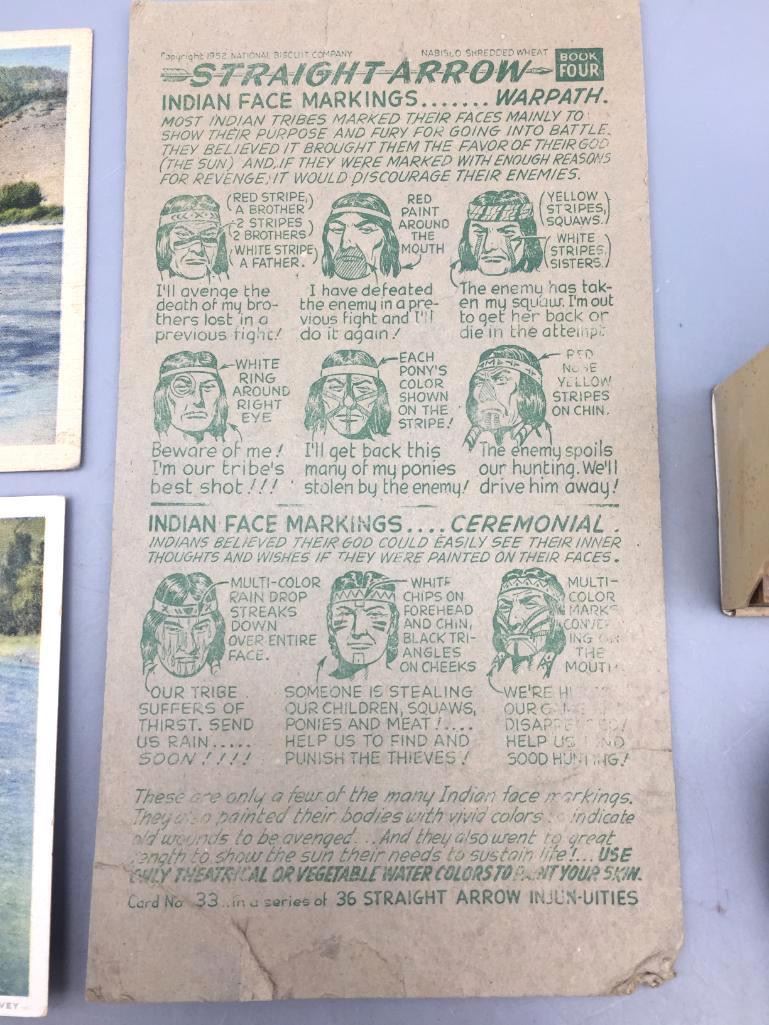 Copyright 1952 NATIONAL BISCUIT COMPANY
NABISCO SHREDDED WHEAT
BOOK
FOUR
STRAIGHT ARROW
INDIAN FACE MARKINGS....... WARPATH.
MOST INDIAN TRIBES MARKED THEIR FACES MAINLY TO
SHOW THEIR PURPOSE AND FURY FOR GOING INTO BATTLE.
THEY BELIEVED IT BROUGHT THEM THE FAVOR OF THEIR GOD
(THE SUN) AND, IF THEY WERE MARKED WITH ENOUGH REASONS
FOR REVENGE, IT WOULD DISCOURAGE THEIR ENEMIES.
(RED STRIPE,
A BROTHER
2 STRIPES
2 BROTHERS)
(WHITE STRIPE
A FATHER.)
I'll avenge the
death of my bro-
thers lost in a
previous fight!
RED
PAINT
AROUND
THE
MOUTH
I have defeated
the enemy in a pre-
vious fight and I'll
do it again!
(YELLOW
STRIPES,
SQUAWS.)
(WHITE
STRIPES,
SISTERS.)
The enemy has tak-
en my squaw. I'm out
to get her back or
die in the attempt.
WHITE
RING
AROUND
RIGHT
EYE
Beware of me!
I'm our tribe's
best shot!!!
EACH
PONY'S
COLOR
SHOWN
ON THE
STRIPE!
I'll get back this
many of my ponies
stolen by the enemy!
RED
NOSE
YELLOW
STRIPES
ON CHIN.
The enemy spoils
our hunting. We'll
drive him away!
INDIAN FACE MARKINGS.... CEREMONIAL.
INDIANS BELIEVED THEIR GOD COULD EASILY SEE THEIR INNER
THOUGHTS AND WISHES IF THEY WERE PAINTED ON THEIR FACES.
MULTI-COLOR
RAIN DROP
STREAKS
DOWN
OVER ENTIRE
FACE.
OUR TRIBE
SUFFERS OF
THIRST. SEND
US RAIN.....
SOON!!!!
WHITE
CHIPS ON
FOREHEAD
AND CHIN,
BLACK TRI-
ANGLES
ON CHEEKS
SOMEONE IS STEALING
OUR CHILDREN, SQUAWS,
PONIES AND MEAT!....
HELP US TO FIND AND
PUNISH THE THIEVES!
MULTI-
COLOR
MARKS
THE
MOUTH
WE'RE
OUR
HELP US
GOOD HUNTING!
These are only a few of the many Indian face markings.
They also painted their bodies with vivid colors to indicate
old wounds to be avenged...And they also went to great
length to show the sun their needs to sustain life!... USE
ONLY THEATRICAL OR VEGETABLE WATER COLORS TO PAINT YOUR SKIN.
Card No. 33..in a series of 36 STRAIGHT ARROW INJUN-UITIES
VEY